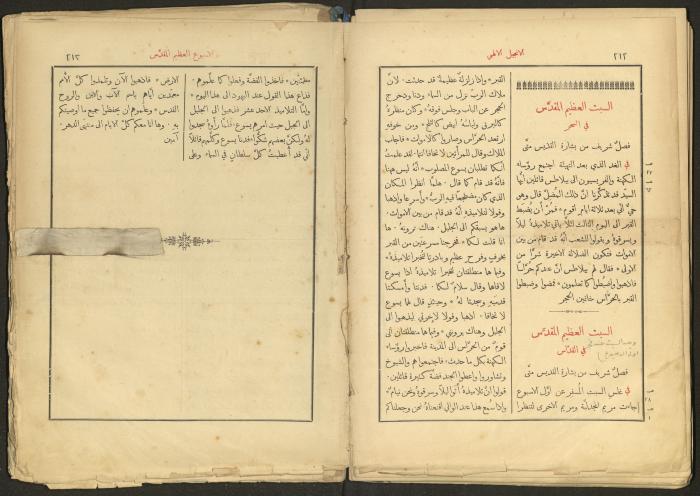 ٢١٢
الانجيل الالهي
السبت العظيم المقدّس
في السحر
فصلٌ شريف من بشارة القديس متّى
في الغد الذي بعد التهيئة اجتمع رؤساء
الكهنة والفريسيون الى بيلاطس قائلين ايها
السيّد قد تذكّرنا انَّ ذلك المُضلَّ قال وهو
حيٌّ اني بعد ثلاثة ايام اقوم * فَمُرْ أن يُضبَط
القبر الى اليوم الثالث لئلَّا يأتي تلاميذهُ ليلاً
ويسرقوهُ ويقولوا للشعب انهُ قد قام من بين
الاموات فتكون الضلالة الاخيرة شرًّا من
الاولى * فقال لهم بيلاطس انَّ عندكم حُرَّاسًا
فاذهبوا واضبطوا كما تعلمون * فمضوا وضبطوا
القبر بالحرَّاس خاتمين الحجر
السبت العظيم المقدّس
في القدّاس
فصلٌ شريف من بشارة القديس متّى
في غلس السبت المُسفِر عن اوَّل الاسبوع
جاءت مريم المجدليَّة ومريم الاخرى لتنظرا
القبر * واذا زلزلة عظيمة قد حدثت. لانَّ
ملاك الربّ نزل من السماء ودنا ودحرج
الحجر عن الباب وجلس فوقهُ * وكان منظرهُ
كالبرق ولباسهُ ابيض كالثلج * ومن خوفهِ
ارتعد الحرَّاس وصاروا كالاموات * فاجاب
الملاك وقال للمرأتين لا تخافا انتما. لقد علمتُ
انكما تطلبان يسوع المصلوب * انهُ ليس ههنا
فانَّهُ قد قام كما قال. هلمَّا انظرا المكان
الذي كان مضطجعًا فيهِ الربُّ * وأسرعا واذهبا
وقولا لتلاميذهِ انهُ قد قام من بين الاموات.
ها هو يسبقكم الى الجليل. هناك ترونهُ. ها
انا قلت لكما * فخرجتا مسرعتين من القبر
بخوفٍ وفرح عظيم وبادرتا لتُخبرا تلاميذهُ *
وفيما هما منطلقتان لتخبرا تلاميذهُ اذا يسوع
لاقاهما وقال سلامٌ لكما. فدنتا وأمسكتا
قدميهِ وسجدتا لهُ * وحينئذٍ قال لهما يسوع
لا تخافا. اذهبا وقولا لإخوتي ليذهبوا الى
الجليل وهناك يرونني * وفيما هما منطلقتان اتى
قومٌ من الحرَّاس الى المدينة فاخبروا رؤساء
الكهنة بكل ما حدث * فاجتمعوا هم والشيوخ
وتشاوروا واعطوا الجند فضّةً كثيرة قائلين.
قولوا انَّ تلاميذهُ أتوا ليلاً وسرقوهُ ونحن نيام *
واذا سُمع هذا عند الوالي اقنعناهُ نحن وجعلناكم
الاسبوع العظيم المقدّس
٢١٣
مطمئنّين * فأخذوا الفضّة وفعلوا كما علَّموهم.
فذاع هذا القول عند اليهود الى هذا اليوم *
وامَّا التلاميذ الاحد عشر فذهبوا الى الجليل
الى الجبل حيث أمرهم يسوع * فلمَّا رأوهُ سجدوا
لهُ ولكنَّ بعضهم شكُّوا * فدنا يسوع وكلَّمهم قائلاً
اني قد أُعطيتُ كلَّ سلطانٍ في السماء وعلى
الارض * فاذهبوا الآن وتلمذوا كلَّ الأُمم
معمّدين ايَّاهم باسم الآب والابن والروح
القدس * وعلّموهم ان يحفظوا جميع ما اوصيتكم
بهِ. وها انا معكم كلَّ الايام الى منتهى الدهر.
آمين